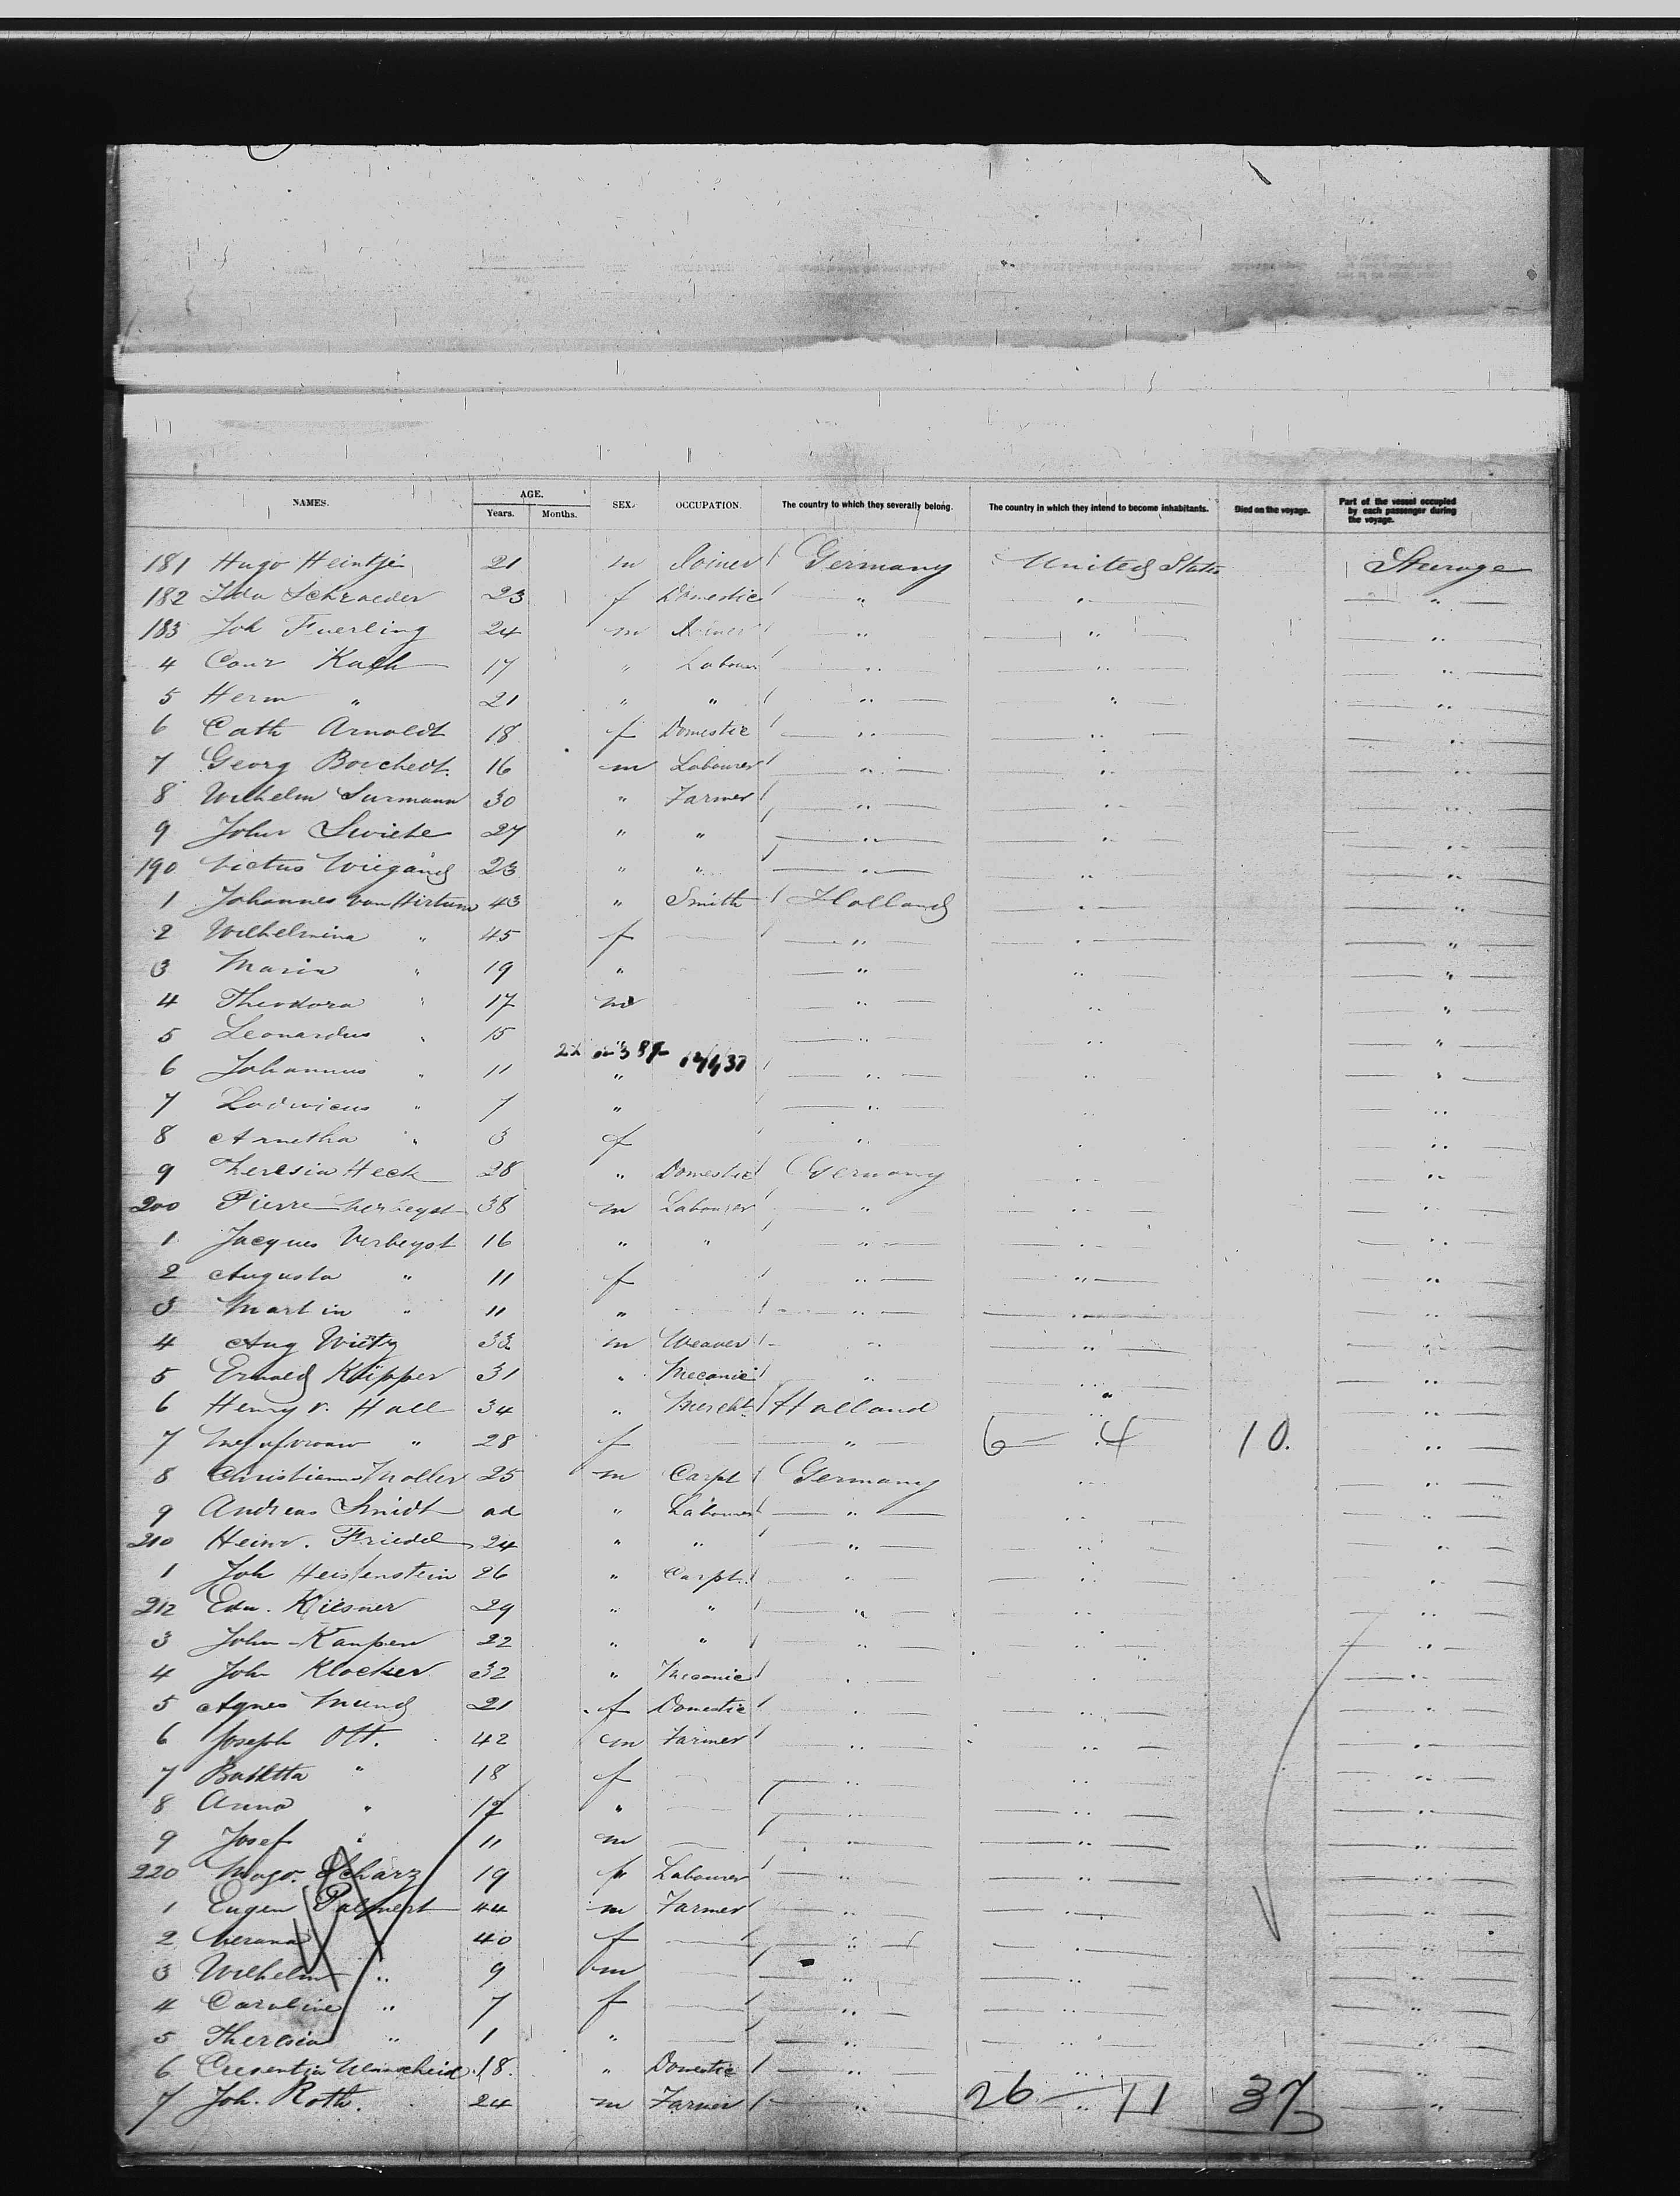 NAMES. AGE. SEX. OCCUPATION. The country to which they severally belong. The country in which they intend to become inhabitants. Died on the voyage. Part of the vessel occupied by each passenger during the voyage.
Years. Months.
181 Hugo Heintje 21 m Joiner Germany United States Steerage
182 Ida Schraeder 23 f Domestic " " "
183 Joh Fuerling 24 m Joiner " " "
4 Conr 17 " Labourer " " "
5 Herm " 21 " " " " "
6 Cath Arnoldt 18 f Domestic " " "
7 Georg Borchedt 16 m Labourer " " "
8 Wilhelm Surmann 30 " Farmer " " "
9 John 27 " " " " "
190 Victus Wiegand 23 " " " " "
1 Johannes van Hirtum 43 " Smith Holland " "
2 Wilhelmina " 45 f " " "
3 Maria " 19 " " " "
4 Theodora " 17 m " " "
5 Leonardus " 15 " " "
6 Johannus " 11 " " " "
7 Lodwicus " 7 " " " "
8 Arnetha " 3 f " " "
9 Theresia Heck 28 " Domestic Germany " "
200 Pierre Verbeyst 38 m Labourer " " "
1 Jacques Verbeyst 16 " " " " "
2 Augusta " 11 f " " "
3 Martin " 11 " " " "
4 Aug Wietz 33 m Weaver " " "
5 Ewald Küpper 31 " Mecanic " " "
6 Henry v. Hall 34 " Mercht Holland " "
7 " 28 f " 6 4 10. "
8 Christian Moller 25 m Carpt Germany " "
9 Andreas Smidt ad " Labourer " " "
210 Heinr. Friedel 24 " " " " "
1 Joh 26 " Carpt. " " "
212 Edu. Kiesner 29 " " " " "
3 John Kampen 22 " " " " "
4 Joh Klocker 32 " Mecanic " " "
5 Agnes Mund 21 f Domestic " " "
6 Joseph Ott. 42 m Farmer " " "
7 " 18 f " " "
8 Anna " 17 " " " "
9 Josef " 11 m " " "
220 Scharz 19 f Labourer " " "
1 Eugen 44 m Farmer " " "
2 40 f " " "
3 Wilhelm " 9 m " " "
4 Caroline " 7 f " " "
5 Theresia " 1 " " " "
6 18. " Domestic " " "
7 Joh. Roth. 24 m Farmer " 26 11 37 "